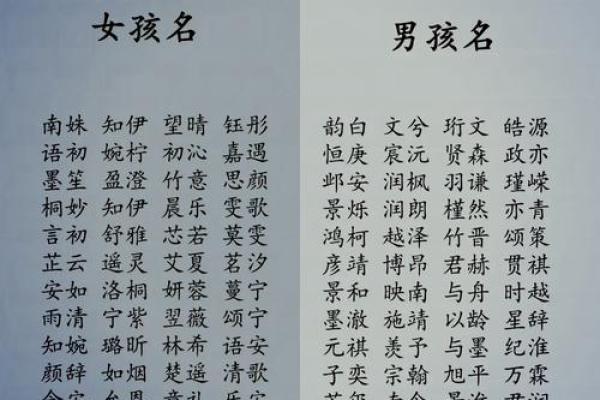 女孩名
南姝 知伊 望晴 钰彤
语初 婉柠 初沁 嘉遇
墨笙 盈澄 竹意 思颜
桐妙 知伊 晨乐 雯歌
言初 舒雅 芯若 莫雯
芷云 遥灵 艾夏 茗汐
安如 洛桐 妍蓉 蔓宁
雨清 宁紫 翌薇 颂宁
知婉 璐昕 林希 语安
颜辞 如烟 楚遥 清歌
男孩名
韵白 文兮 珩文 皓源
恒庚 宸沅 贤森 政亦
邺安 润枫 羽谦 瑾嵘
景烁 润朗 槿然 亦青
鸿柯 越泽 竹晋 颂策
彦靖 博昂 君赫 贯祺
景和 映南 与舟 时越
墨澈 施靖 以龄 星辞
元祺 羡予 与墨 纪淮
子奕 宗翰 旭平 万霖